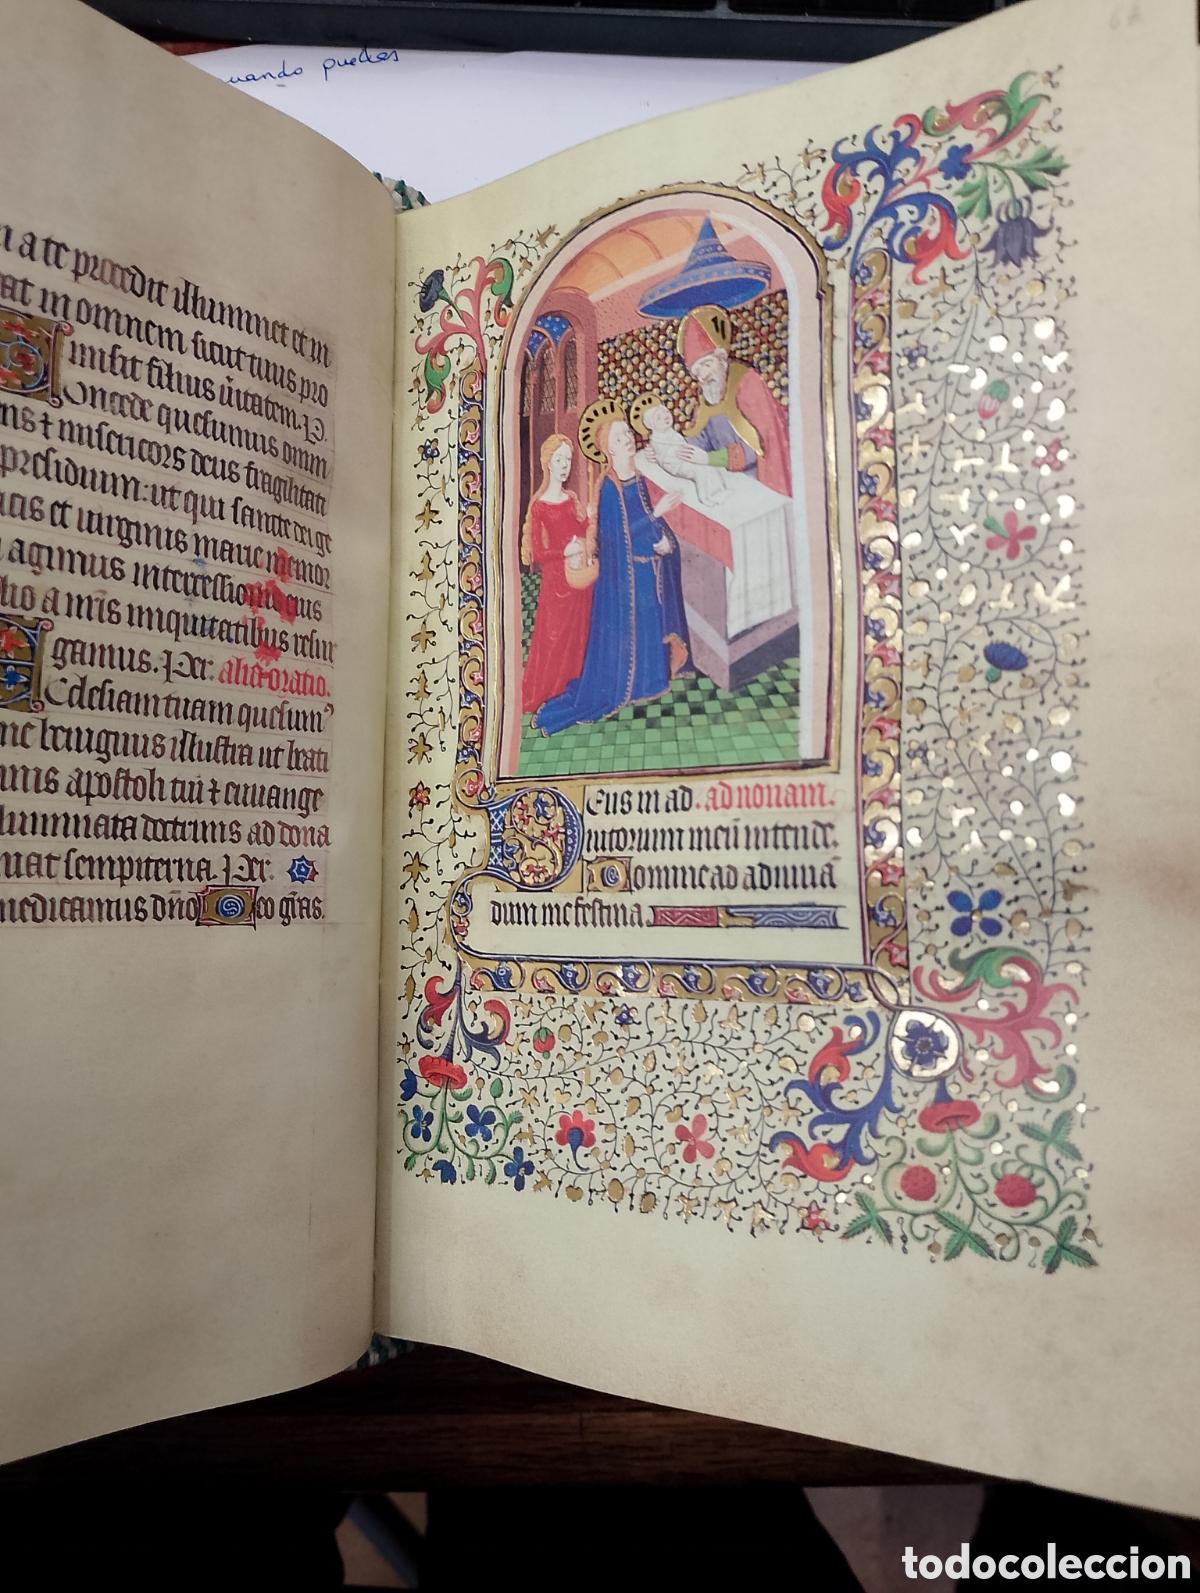 cuando puedas
62
a te procedit illuminet et in
at in omnem sicut tuus pro
misit filius ūitatem. P.
Oncede quesumus omni
ns ⁊ misericors deus fragilitati
presidium: ut qui sancte dei ge
cis et uirginis marie memor
agimus intercessionis eius
lio a nr̄is iniquitatibus resur
gamus. Per. alia oratio.
Ecclesiam tuam quesum⁹
ne benignus illustra ut beati
nnis apostoli tui ⁊ euuange
lluminata doctrinis ad dona
niat sempiterna. Per.
nedicamus dn̄o Deo gr̄as.
Deus in ad. ad nonam.
iutorium meū intende.
Domine ad adiuuā
dum me festina.
todocoleccion